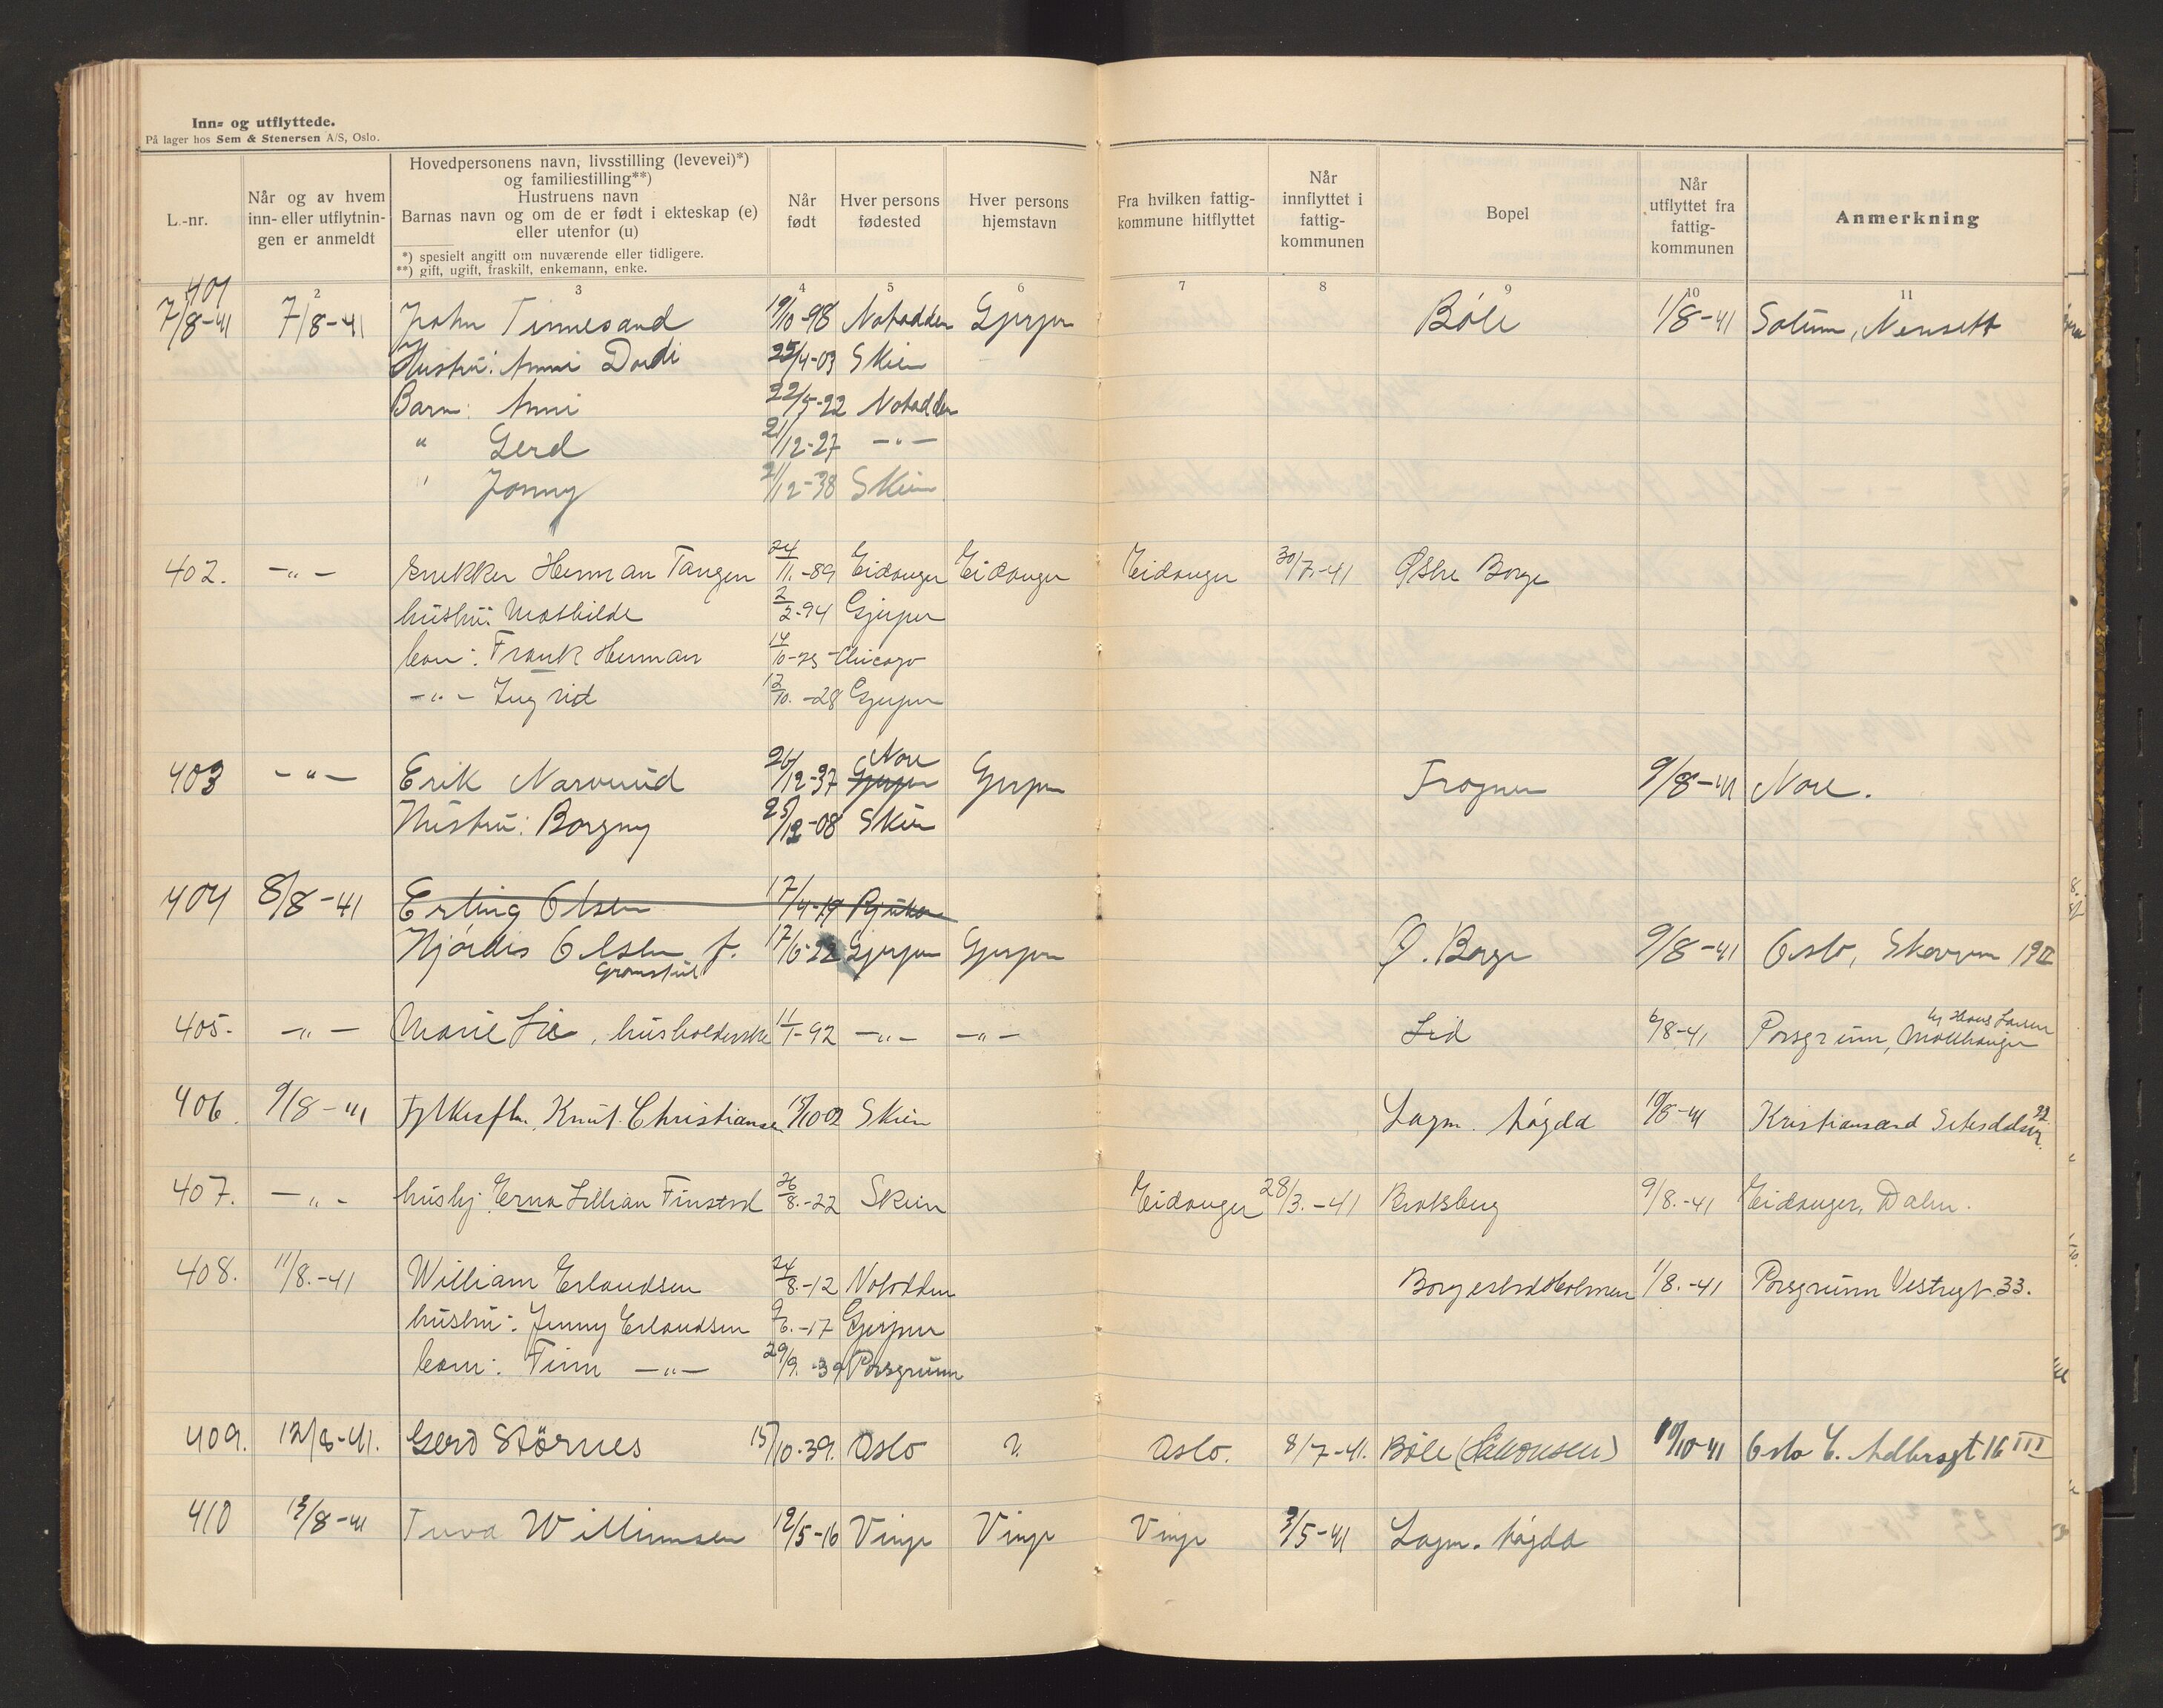 Inn- og utflyttede.
På lager hos Sem & Stenersen A/S, Oslo.
L.-nr.
Når og av hvem
inn- eller utflytnin-
gen er anmeldt
Hovedpersonens navn, livsstilling (levevei)*)
og familiestilling**)
Hustruens navn
Barnas navn og om de er født i ekteskap (e)
eller utenfor (u)
*) spesielt angitt om nuværende eller tidligere.
**) gift, ugift, fraskilt, enkemann, enke.
Når
født
Hver persons
fødested
Hver persons
hjemstavn
Fra hvilken fattig-
kommune hitflyttet
Når
innflyttet i
fattig-
kommunen
Bopel
Når
utflyttet fra
fattig-
kommunen
Anmerkning
2 3 4 5 6 7 8 9 10 11
401
7/8-41 7/8-41 John Tinnesand 19/10-98 Notodden Gjerpen Bøle 1/8-41 Solum, Nensett
Hustru: Anni Dordi 25/4-03 Skien
Barn: Anni 22/5-22 Notodden
" Gerd 21/12-27 -"-
" Jonny 21/12-38 Skien
402. -"- snekker Herman Tangen 24/11.-89 Eidanger Eidanger Eidanger 30/7.-41 Østre Borge
hustru: Mathilde 2/2-94 Gjerpen
barn: Frank Herman 14/10-25 Chicago
-"- Ingrid 12/10.-28 Gjerpen
403 -"- Erik Narverud 26/12-37 Gjerpen Nore Gjerpen Frogner 9/8-41 Nore.
Hustru: Borgny 25/12-08 Skien
404 8/8-41 Erling Olsen 17/4-19 Rjukan
Hjördis Olsen f. 17/6-22 Gjerpen Gjerpen Ø. Borge 9/8-41 Oslo, Skovvn 19 II
Grønstul
405. -"- Marie Lie, husholderske 11/1-92 -"- -"- Lid 6/8-41 Porsgrunn,
by Hans Larsen
406. 9/8-41 Fylkesfm. Knut Christiansen 15/10-02 Skien Lagm. høgda 10/8-41 Kristiansand
407. -"- hushj. Erna Lillian Finstad 26/8.-22 Skien Eidanger 28/3.-41 Bratsberg 9/8.-41 Eidanger, Dalen.
408. 11/8.-41 William Erlandsen 24/8.-12 Notodden Borgestadholmen 1/8.-41 Porsgrunn Vestregt. 33.
hustru: Jenny Erlandsen 9/6.-17 Gjerpen
barn: Finn -"- 29/9.-39 Porsgrunn
409. 12/8-41. Gerd Störnes 15/10-39. Oslo ?. Oslo. 8/7-41. Bøle (Håkonsen) 10/10-41 Oslo C. 16 III
410 12/8-41 Tuva Willumsen 12/5-16 Vinje Vinje Vinje 3/5-41 Lagm. høgda